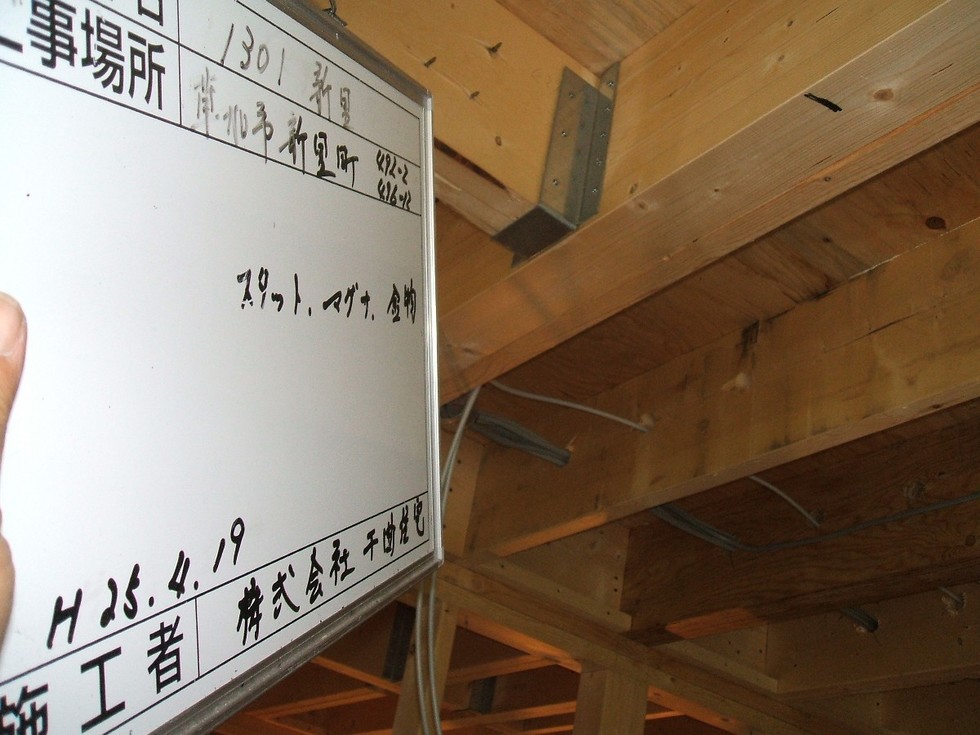 名
1301 新里
工事場所
市新里町 492-2
496-12
スリット、マグナ、金物
H25.4.19
施工者
株式会社 千曲住宅